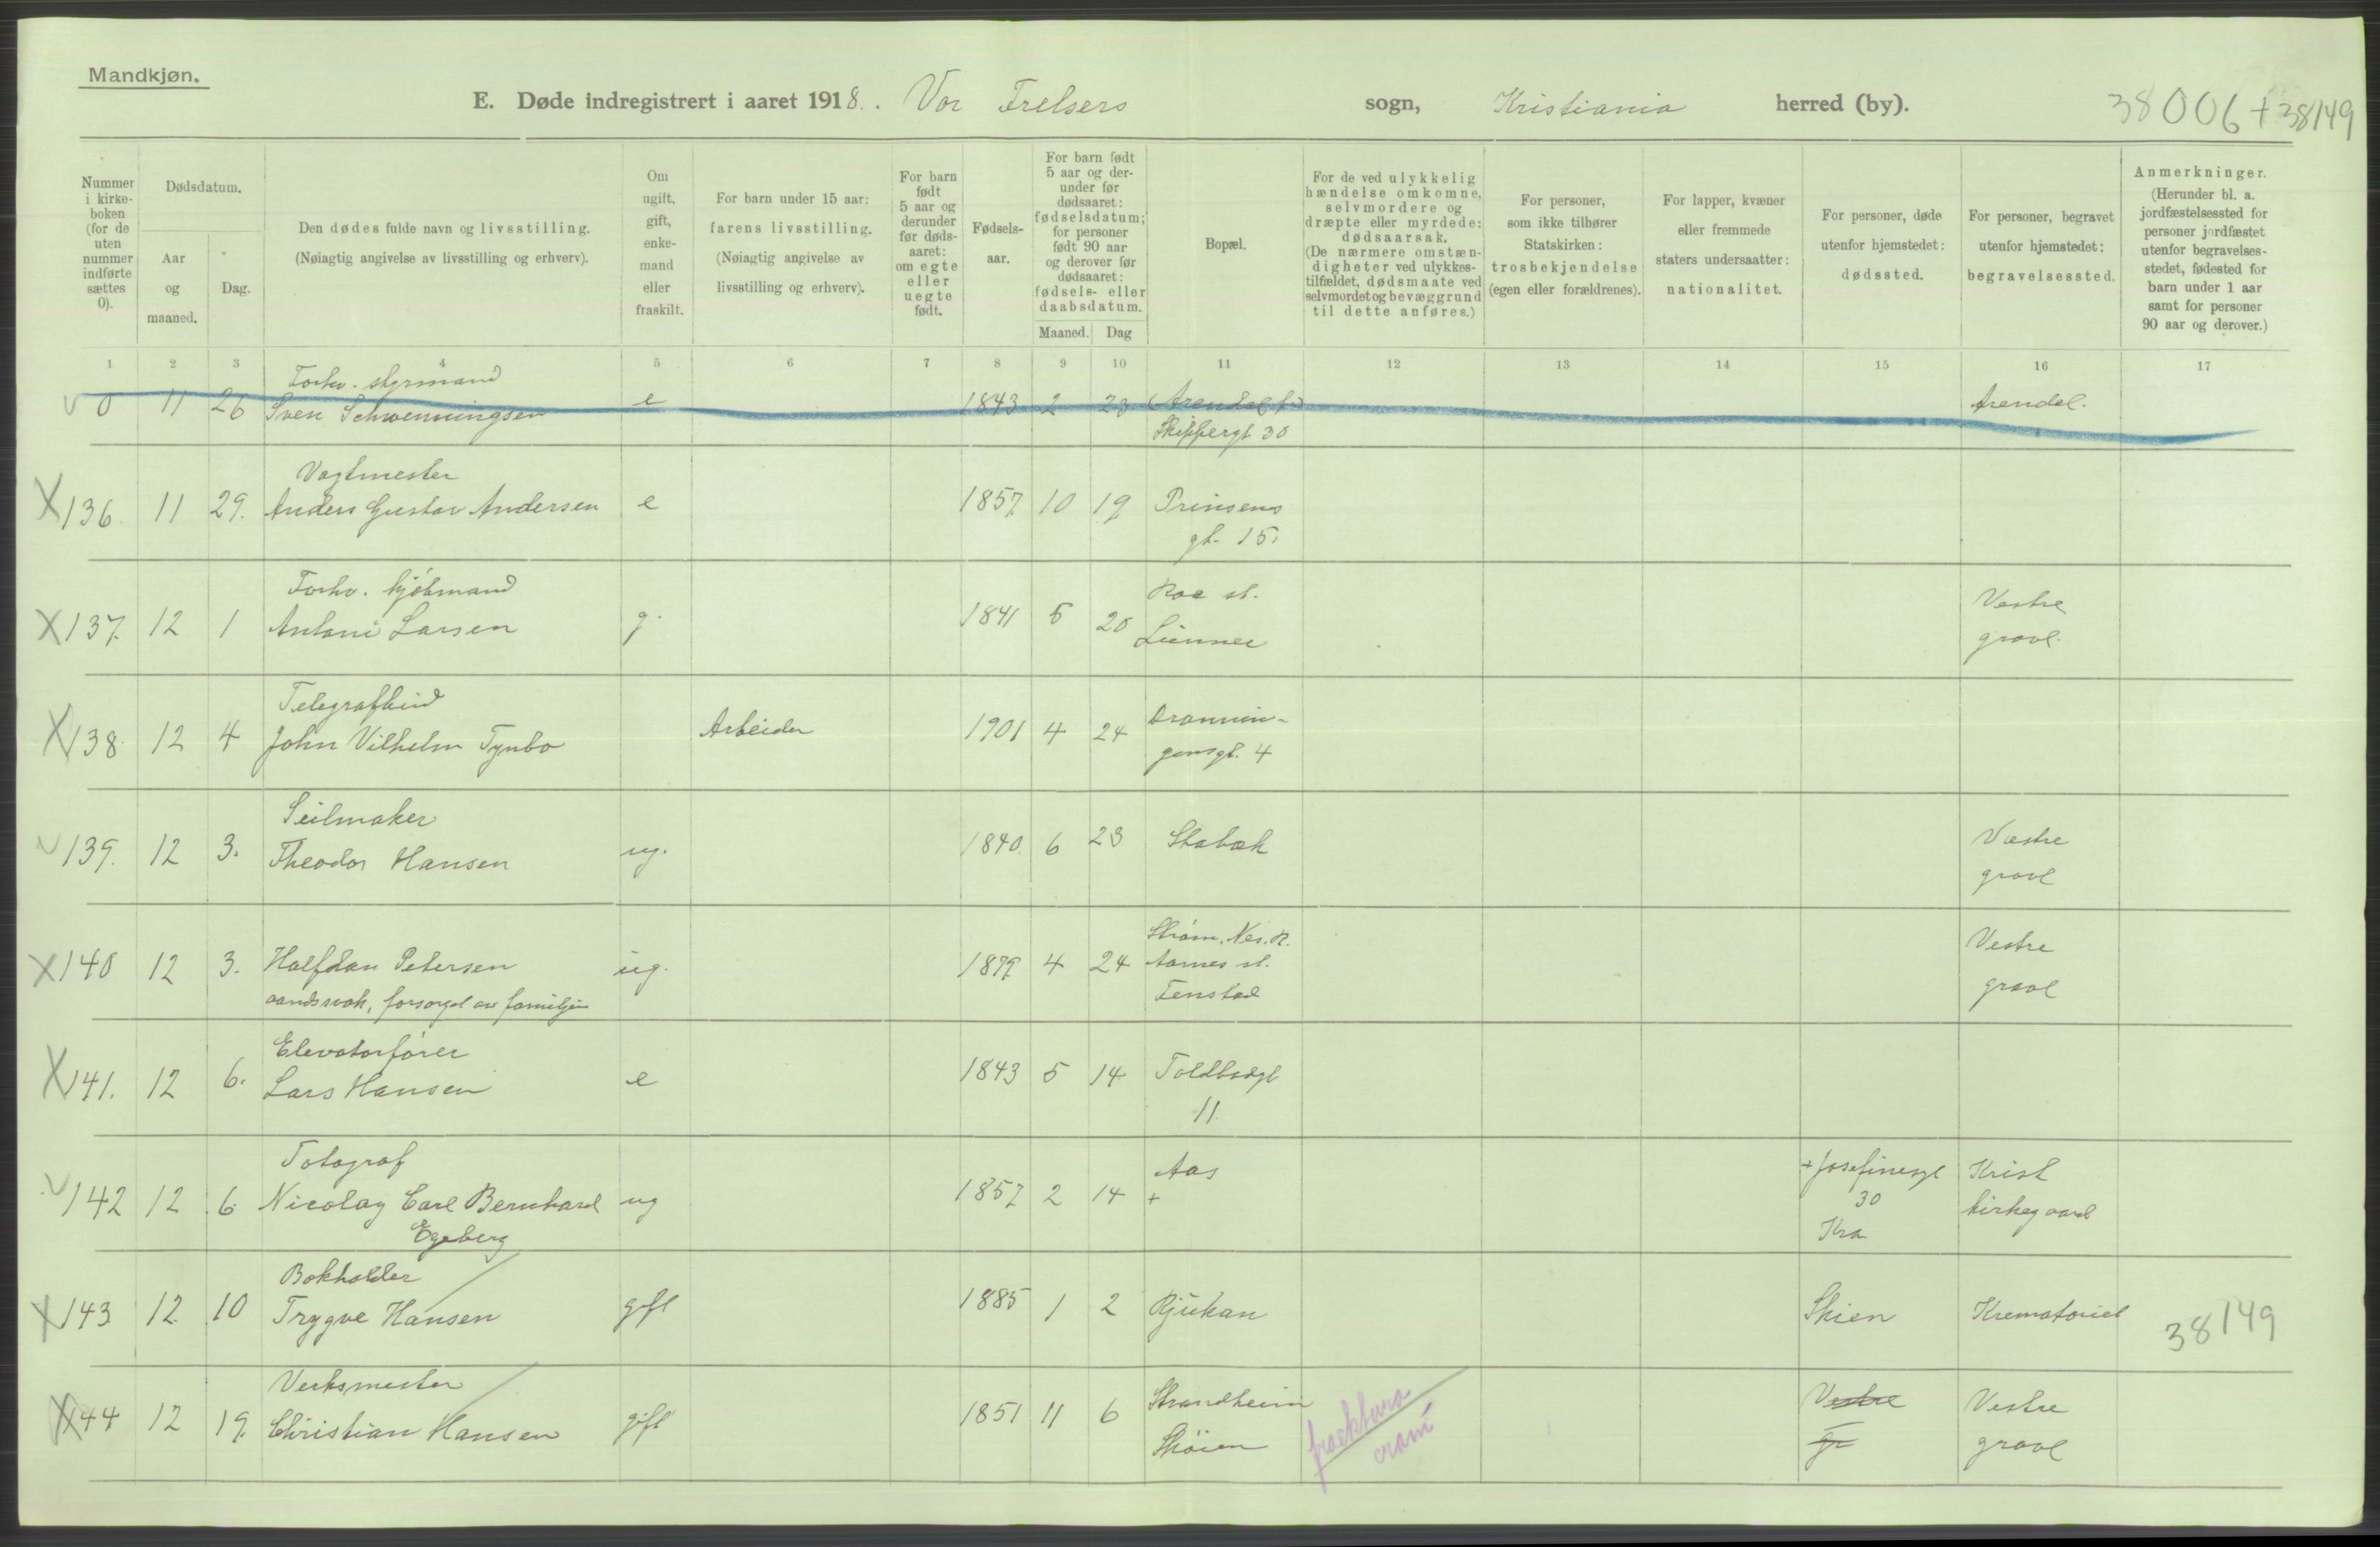 Mandkjøn.
E. Døde indregistrert i aaret 1918. Vor Frelsers sogn, Kristiania herred (by). 38006 + 38149
Nummer i kirke-boken (for de uten nummer indførte sættes 0).
Dødsdatum.
Aar og maaned.
Dag.
Den dødes fulde navn og livsstilling.
(Nøiagtig angivelse av livsstilling og erhverv).
Om ugift, gift, enke-mand eller fraskilt.
For barn under 15 aar: farens livsstilling.
(Nøiagtig angivelse av livsstilling og erhverv).
For barn født 5 aar og derunder før døds-aaret: om egte eller uegte født.
Fødsels-aar.
For barn født 5 aar og der-under før dødsaaret: fødselsdatum; for personer født 90 aar og derover før dødsaaret: fødsels- eller daabsdatum.
Maaned. Dag
Bopæl.
For de ved ulykkelig hændelse omkomne, selvmordere og dræpte eller myrdede: dødsaarsak.
(De nærmere omstæn-digheter ved ulykkes-tilfældet, dødsmaate ved selvmordet og bevæggrund til dette anføres.)
For personer, som ikke tilhører Statskirken: trosbekjendelse (egen eller forældrenes).
For lapper, kvæner eller fremmede staters undersaatter: nationalitet.
For personer, døde utenfor hjemstedet: dødssted.
For personer, begravet utenfor hjemstedet: begravelsessted.
Anmerkninger.
(Herunder bl. a. jordfæstelsessted for personer jordfæstet utenfor begravelses-stedet, fødested for barn under 1 aar samt for personer 90 aar og derover.)
1 2 3 4 5 6 7 8 9 10 11 12 13 14 15 16 17
Forhv. styrmand
0 11 26 Sven Schwenningsen e 1843 2 23 Arendal Arendal.
Skippergt 30
Vagtmester
X 136. 11 29. Anders Gustav Andersen e 1857 10 19 Prinsens
gt. 15
Forhv. kjøbmand Roa st. Vestre
X 137. 12 1 Antoni Larsen g. 1841 5 20 Lunner gravl.
Telegrafbud
X 138. 12 4 John Vilhelm Tynbo Arbeider 1901 4 24 Dronnin-
gensgt. 4
Seilmaker Vestre
139. 12 3. Theodor Hansen ug. 1840. 6 23 Stabæk gravl
Strøm, Nes. R. Vestre
X 140 12 3. Halfdan Petersen ug. 1879 4 24 Aarnes st. gravl
aandssvak, forsørget av familjen Tenstad
Elevatorfører
X 141. 12 6. Lars Hansen e 1843 5 14 Toldbodgt
11.
Fotograf Aas + Josefinesgt Krist
142 12 6. Nicolay Carl Bernhard ug 1857 2 14 + 30 kirkegaard
Egeberg Kra
Bokholder
X 143 12. 10 Trygve Hansen gift 1885 1 2 Rjukan Skien Krematoriet 38149
Verksmester Strandheim Vestre Vestre
X 144 12 19. Christian Hansen gift 1851 11 6 Skøien fracktura crani gr gravl